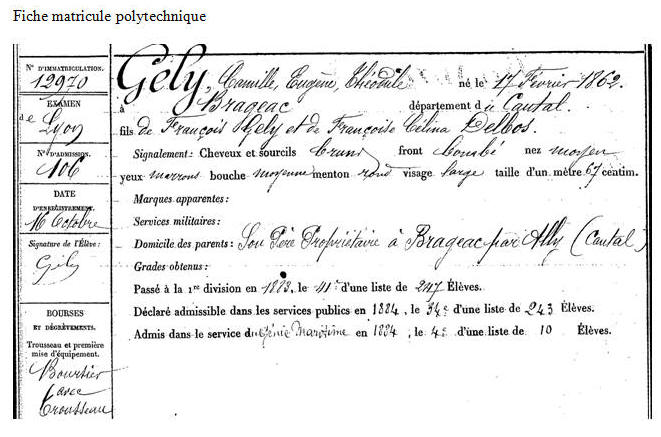 Fiche matricule polytechnique
N° D'IMMATRICULATION.
12970
EXAMEN
de Lyon
N° D'ADMISSION.
106
DATE
D'ENREGISTREMENT.
16 Octobre
Signature de l'Élève :
Gély
BOURSES
ET DÉGRÈVEMENTS.
Trousseau et première
mise d'équipement.
Boursier
avec
trousseau
Gély, Camille, Eugène, Théodule né le 17 Février 1862.
à Brageac département du Cantal.
fils de François Gely et de Françoise Célina Delbos.
Signalement : Cheveux et sourcils bruns front bombé nez moyen
yeux marrons bouche moyenne menton rond visage large taille d'un mètre 67 centim.
Marques apparentes :
Services militaires :
Domicile des parents : Son Père Propriétaire à Brageac par Ally (Cantal)
Grades obtenus :
Passé à la 1re division en 1883, le 41e d'une liste de 247 Élèves.
Déclaré admissible dans les services publics en 1884, le 34e d'une liste de 243 Élèves.
Admis dans le service du Génie Maritime en 1884, le 4e d'une liste de 10 Élèves.